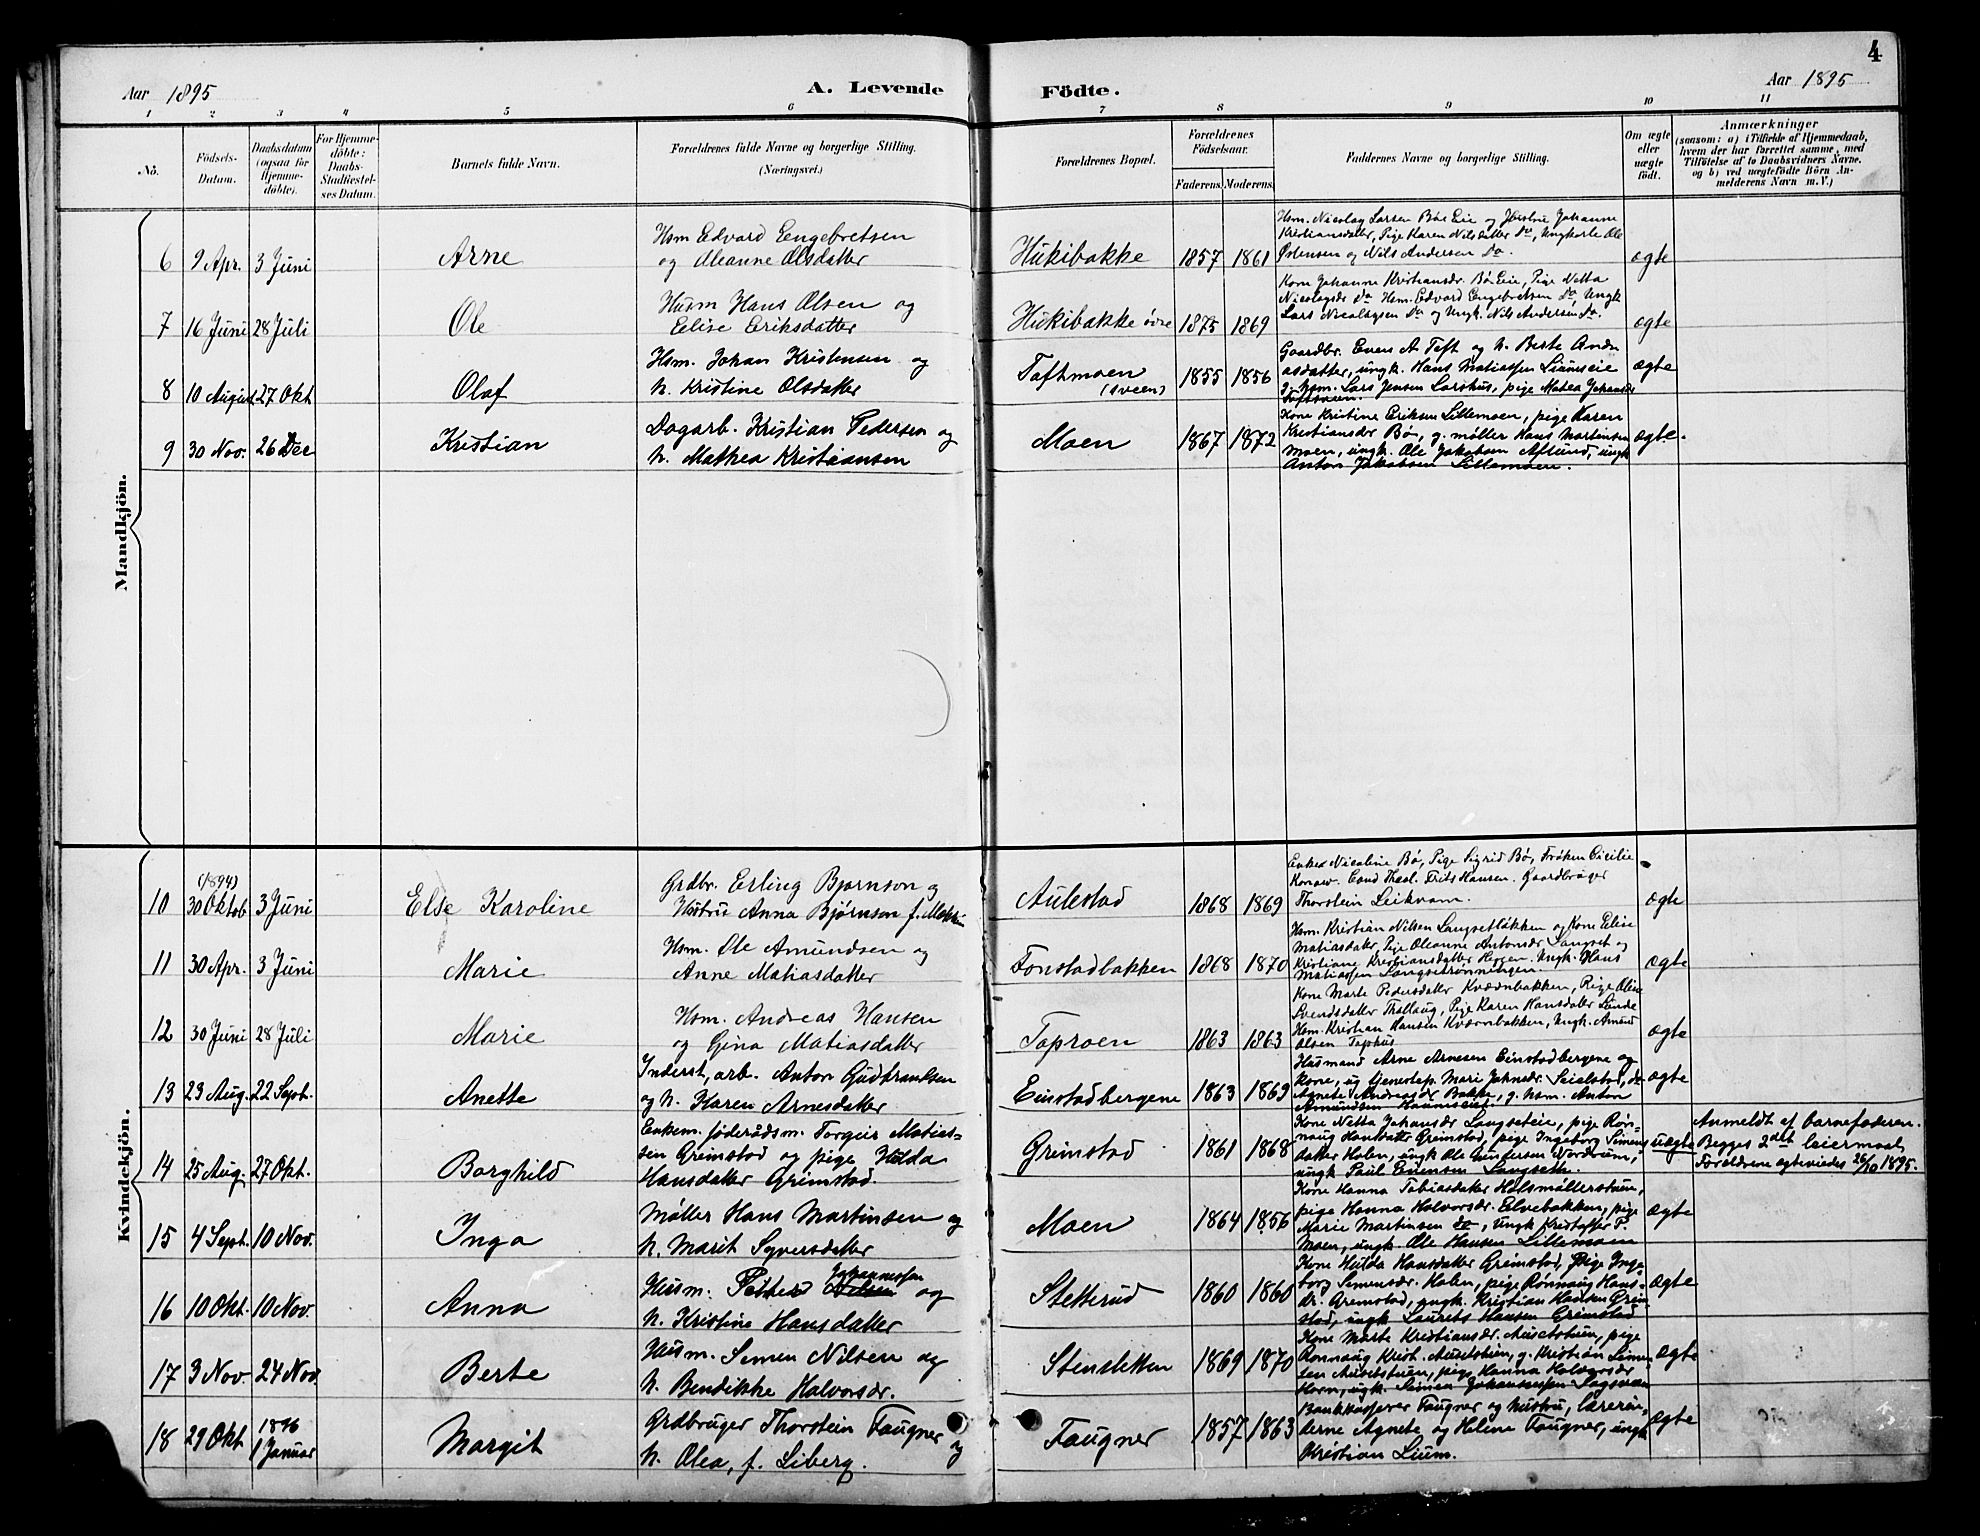 4
Aar 1895 A. Levende Födte. Aar 1895
1 2 3 4 5 6 7 8 9 10 11
No.
Födsels-Datum.
Daabsdatum (ogsaa for Hjemme-döbte).
For Hjemme-döbte: Daabs-Stadfæstel-ses Datum.
Barnets fulde Navn.
Forældrenes fulde Navne og borgerlige Stilling. (Næringsvei.)
Forældrenes Bopæl.
Forældrenes Födselsaar.
Faderens. Moderens.
Faddernes Navne og borgerlige Stilling.
Om ægte eller uægte födt.
Anmærkninger
(saasom: a) i Tilfælde af Hjemmedaab, hvem der har forrettet samme, med Tilföielse af to Daabsvidners Navne, og b) ved uægtefödte Börn An-melderens Navn m. V.)
Mandkjön.
6 9 Apr. 3 Juni Arne
Hsm Edvard Engebretsen
og Oleanne Olsdatter
Hukibakke 1857 1861
Hsm. Nicolay Larsen Bøe Eie og Hustru Johanne
Kristiansdatter, Pige Karen Nilsdatter do, Ungkarle Ole
Østensen og Nils Andersen do.
ægte
7 16 Juni 28 Juli Ole
Husm Hans Olsen og
Elise Eriksdatter
Hukibakke øvre 1875 1869
Kone Johanne Kristiansdr. Bø Eie, Pige Netta
Nicolaysdr do Hsm. Edvard Engebretsen do, Ungk
Lars Nicolaysen do og Ungk. Nils Andersen do.
ægte
8 10 August 27 Okt Olaf
Hsm. Johan Kristensen og
h. Kristine Olsdatter
Toftmoen (sveen) 1855 1856
Gaardbr. Even A Toft og h. Berte Andre
asdatter, ungk. Hans Matiassen Liumseie
g. hsm. Lars Jensen Larshus, pige Matea Johansdr
Toftsveen.
ægte
9 30 Nov. 26 Dec Kristian
Dagarb. Kristian Pedersen og
h. Mathea Kristiansen
Moen 1867 1872
Kone Kristine Eriksen Lillemoen, pige Karen
Kristiansdr Bø, g. møller Hans Martinsen
Moen, ungk. Ole Jakobsen Aflund, ungk
Anton Jakobsen Lillemoen.
ægte.
Kvindekjön.
10 (1894) 30 Oktob 3 Juni Else Karoline
Grdbr. Erling Bjørnson og
Hustru Anna Bjørnson f.
Aulestad 1868 1869
Enkea Nicoline Bø, Pige Sigrid Bø, Frøken Cicilie
Konow. Cand Theol. Frits Hansen. Gaardbruger
Thorstein Leikvam.
ægte
11 30 Apr. 3 Juni Marie
Hsm. Ole Amundsen og
Anne Matiasdatter
Fonstadbakken 1868 1870
Hsm. Kristian Nilsen Langsetløkken og Kone Elise
Matiasdatter, Pige Oleanne Antonsdr Langset og
Kristiane Kristiansdatter Haugen. Ungk. Hans
Matiassen Langsetrønningen.
ægte
12 30 Juni 28 Juli Marie
Hsm. Andreas Hansen
og Gina Matiasdatter
Toproen 1863 1863
Kone Marte Pedersdatter Kværnbakken, Pige Oline
Svendsdatter Thallaug, Pige Karen Hansdatter Lunde
Hsm. Kristian Hansen Kværnbakken, Ungk. Amund
Olsen Tophus
ægte
13 23 Aug. 22 Sept. Anette
Inderst, arb. Anton Gudbrandsen
og h. Karen Arnesdatter
Einstadbergene 1863 1869
Husmand Arne Arnesen Einstadbergene og
kone, ug tjenestep. Mari Johnsdr. Seielstad, do
Agnete Andreasdr Bakke, g. hsm. Anton
Amundsen
ægte
14 25 Aug. 27 Okt. Borghild
Enkem. føderådsm. Torgeir Matias-
sen Grimstad og pige Hilda
Hansdatter Grimstad.
Grimstad 1861 1868
Kone Netta Johansdr Langseteie, pige Røn-
naug Hansdatter Grimstad, pige Ingeborg Simens
datter Holen, ungk Ole Nordrum,
ungk Paul Evensen Langseth.
uægte
Anmeldt af barnefaderen.
Begges 2det leiermaal
Forældrene ægteviedes 26/10 1895.
15 4 Sept. 10 Nov. Inga
Møller Hans Martinsen og
h. Marit Syversdatter
Moen 1864 1856
Kone Hanna Tobiasdatter Holsmøllerstuen,
pige Hanna Halvorsdr. Elvebakken, pige
Marie Martinsen do, ungk Kristoffer P.
Moen, ungk. Ole Hansen Lillemoen
ægte
16 10 Okt. 10 Nov. Anna
Husm. Petter Johannessen og
h. Kristine Hansdatter
Stetterud 1860 1860
Kone Hulda Hansdatter Grimstad, Pige Inge-
borg Simensdr. Holen, pige Rønnaug Hans-
dr. Grimstad, ungk. Kristian Hansen Grim
stad, ungk Laurits Hansen Grimstad
ægte
17 3 Nov. 24 Nov. Berte
Husm. Simen Nilsen og
h. Bendikke Halvorsdr.
Stensletten 1869 1870
Kone Marte Kristiansdr. Musetstuen, pige
Rønnaug Krist. Musetstuen, g. Kristian Simen
sen Musetstuen, pige Hanna Halvorsdr
Horn, ungk. Simen Johannessen
ægte
18 29 Okt 1896 1 Januar Margit
Grdbruger Thorstein Faugner og
h. Olea, f. Liberg.
Faugner 1857 1863
Bankkasserer Faugner og hustru, lærerin-
derne Agnete og Helene Faugner, ungk
Kristian Lium.
ægte